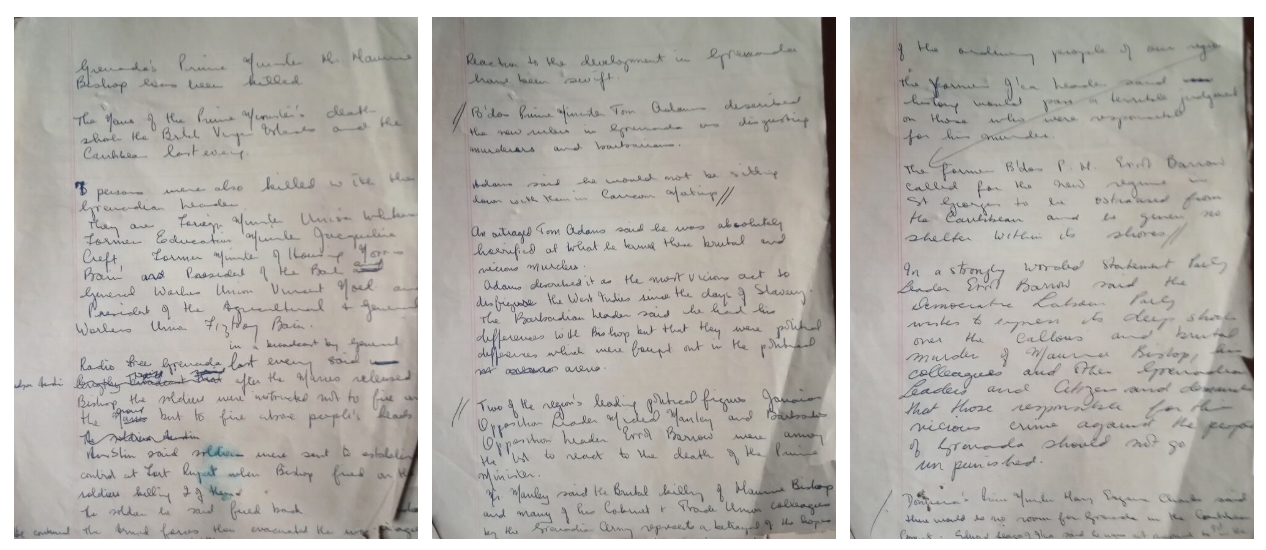 Grenada's Prime Minister Mr. Maurice
Bishop has been killed
The News of the Prime Minister's death
shook the British Virgin Islands and the
Caribbean last every.
persons were also killed with the
Grenadian leader
They are Foreign Minister Unison Whiteman
Former Education Minister Jacqueline
Creft Former Minister of Housing Norris
Bain and President of the Bank and
General Workers Union Vincent Noel and
President of the Agricultural & General
Workers Union Fitzroy Bain.
in a broadcast by General
Radio Free Grenada last every said
after the Masses released
Bishop the soldiers were instructed not to fire on
the but to fire above people's heads
The soldiers Austin
Austin said soldiers were sent to establish
control at Fort Rupert when Bishop fired on the
soldiers killing 2 of them.
The soldiers he said fired back
he continued The armed forces then evacuated the
Reaction to the development in Grenada
have been swift.
B'dos Prime Minister Tom Adams described
the new rulers in Grenada as disgusting
murderers and barbarians.
Adams said he would not be sitting
down with them in Caricom Meetings
An outraged Tom Adams said he was absolutely
horrified at what he termed these brutal and
vicious murders.
Adams described it as the most vicious act to
disfigure the West Indies since the days of Slavery.
The Barbadian leader said he had his
differences with Bishop but that they were political
differences which were fought out in the political
arena.
Two of the region's leading political figures Jamaican
Opposition Leader Michael Manley and Barbados
Opposition leader Errol Barrow were among
the 1st to react to the death of the Prime
Minister.
Mr Manley said the Brutal killing of Maurice Bishop
and many of his Cabinet & Trade Union colleagues
by the Grenadian Army represent a betrayal of the hopes
of the ordinary people of our region
The former J'ca leader said
history would pass a terrible judgement
on those who were responsible
for his murder.
The former B'dos P.M. Errol Barrow
called for the new regime in
St Georges to be ostracised from
the Caribbean and be given no
shelter within its shores
In a strongly worded statement Party
Leader Errol Barrow said the
Democratic Labour Party
wishes to express its deep shock
over the callous and brutal
murder of Maurice Bishop, his
colleagues and other Grenadian
Leaders and Citizens and demands
that those responsible for this
vicious crime against the people
of Grenada should not go
un punished.
Dominica's Prime Minister Mary Eugenia Charles said
there would be no room for Grenada in the Caribbean